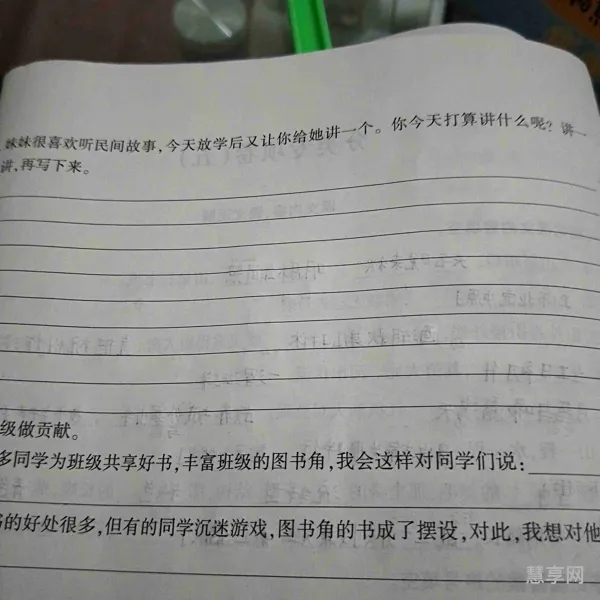 妹妹很喜欢听民间故事,今天放学后又让你给她讲一个。你今天打算讲什么呢?讲一
讲,再写下来。
级做贡献。
多同学为班级共享好书,丰富班级的图书角,我会这样对同学们说:
的好处很多,但有的同学沉迷游戏,图书角的书成了摆设,对此,我想对他
慧享网